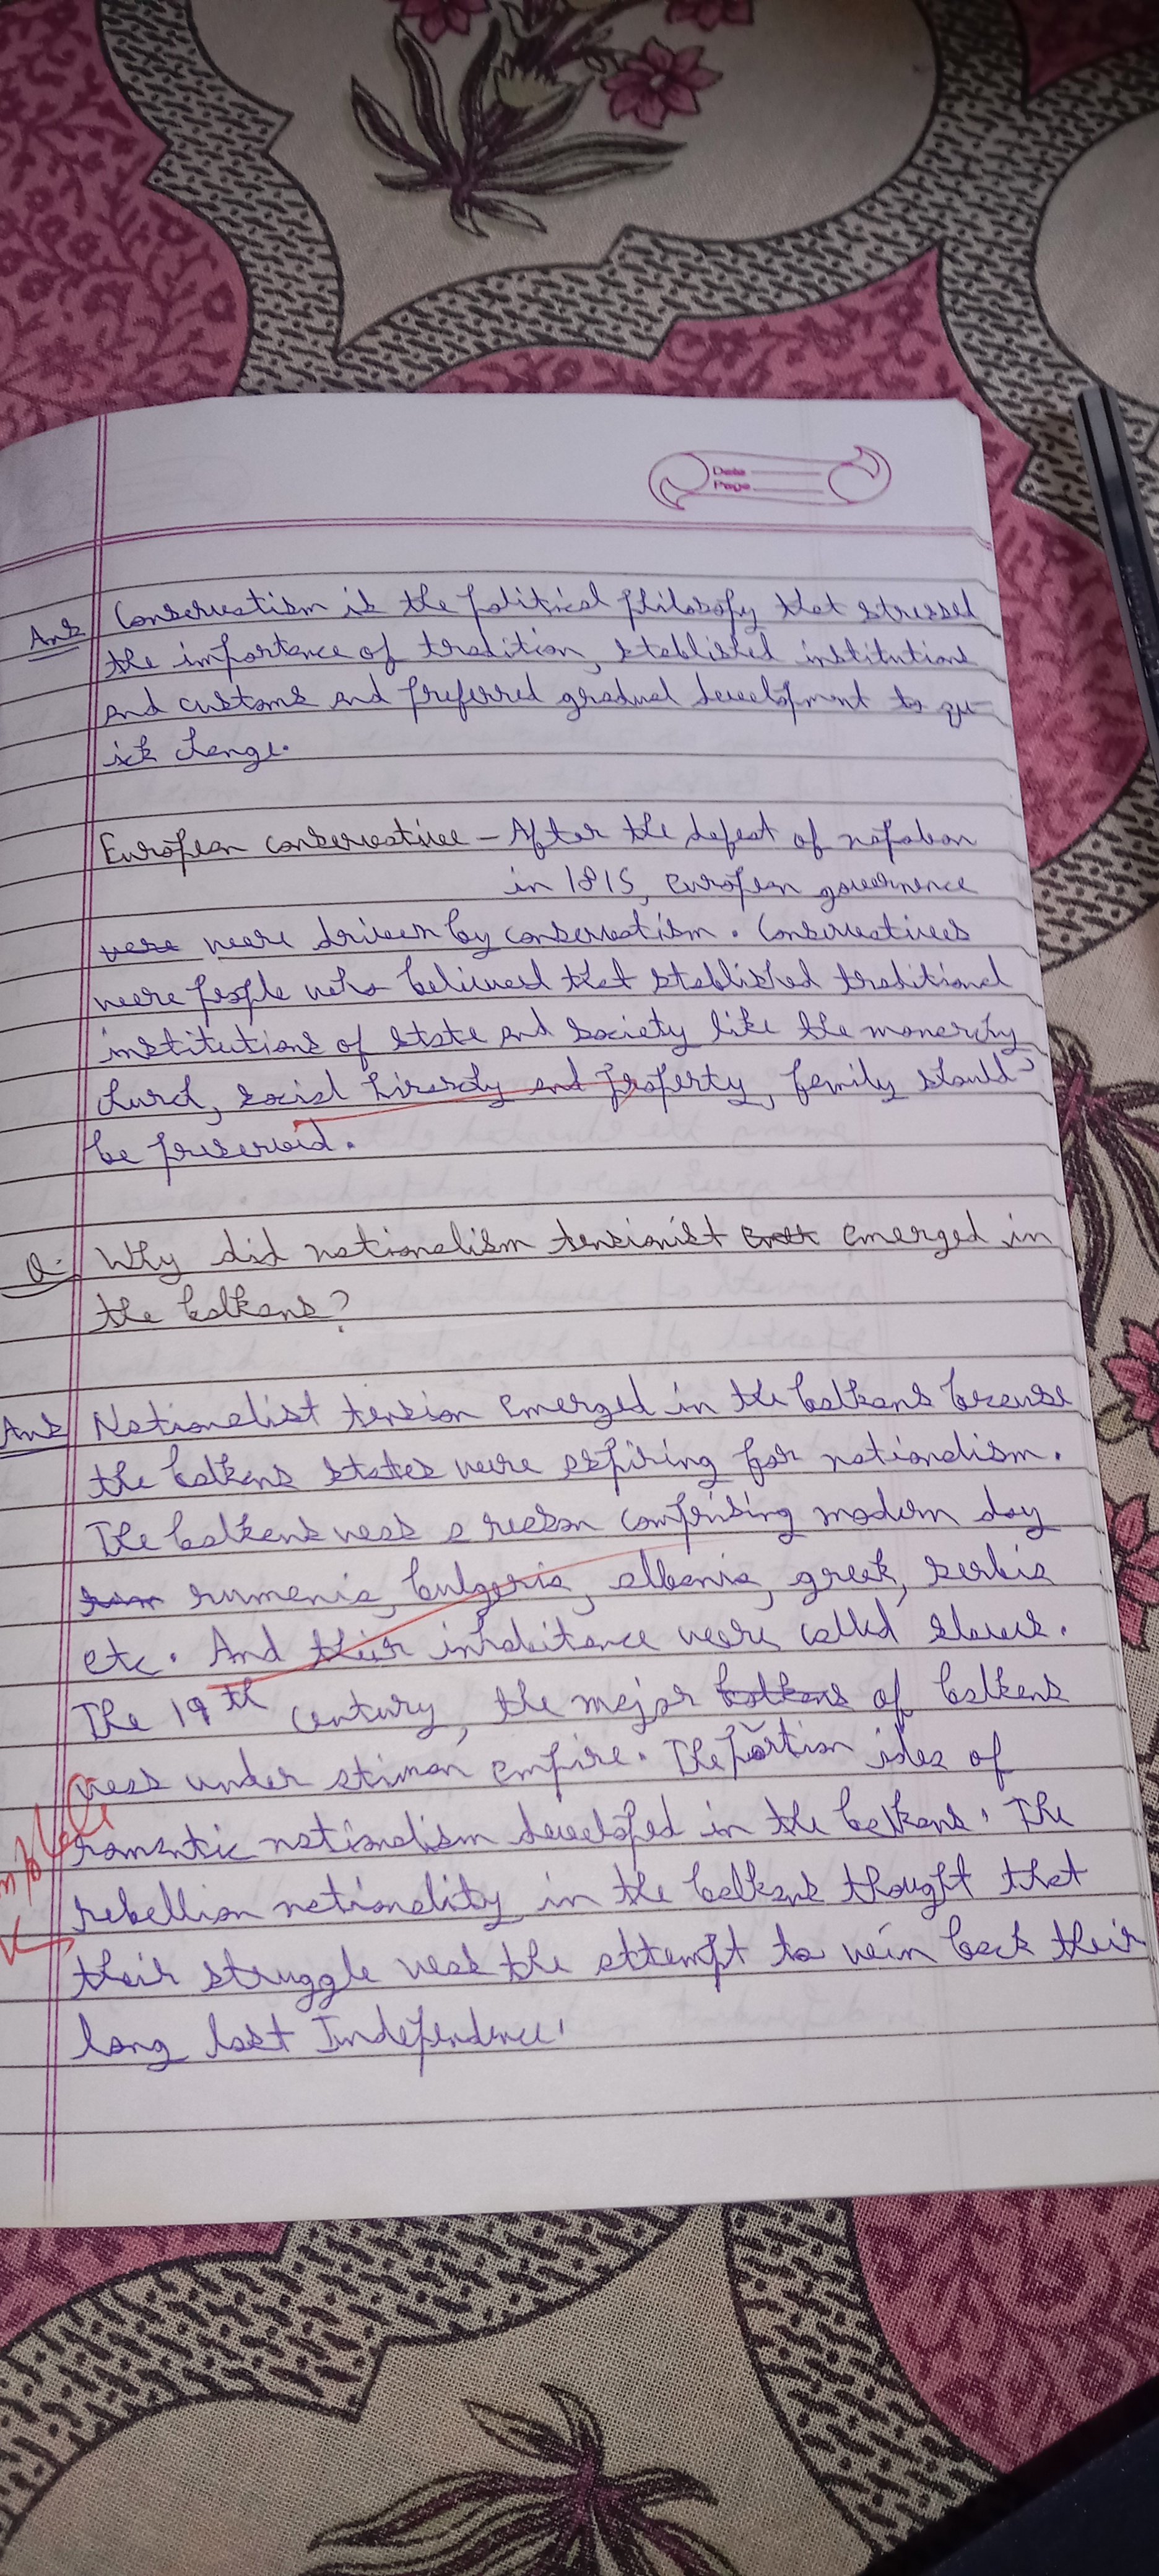 Date
Page
Ans Conservatism is the political philosofy that stressed
the importance of tradition, stablished institutions
and customs and preferred gradual development to qu-
ick change.
European conservative - After the defeat of napoleon
in 1815, european governence
were driven by conservatism. Conservatives
were people who believed that stablished traditional
institutions of state and society like the monarchy
church, social hirarchy and property, family should
be preserved.
Q. Why did nationalism tensionist emerged in
the balkans?
Ans Nationalist tension emerged in the balkans because
the balkans states were aspiring for nationalism.
The balkans was a reason comprising modern day
rumenia, bulgaria, albania, greek, serbia
etc. And their inhabitance were called slavs.
The 19th century, the major of balkans
was under otiman empire. The portion idea of
romantic nationalism developed in the balkans. The
rebellion nationality in the balkans thought that
their struggle was the attempt to win back their
long lost Independence.